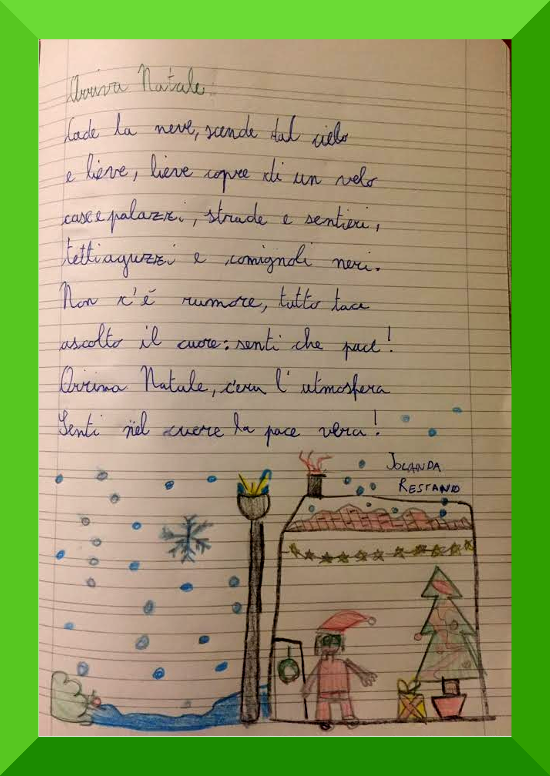 Arriva Natale
Cade la neve, scende dal cielo
e lieve, lieve copre di un velo
case e palazzi, strade e sentieri,
tetti aguzzi e comignoli neri.
Non c'è rumore, tutto tace
ascolto il cuore: senti che pace!
Arriva Natale, c'era l'atmosfera
Senti nel cuore la pace vera!
JOLANDA
RESTANO